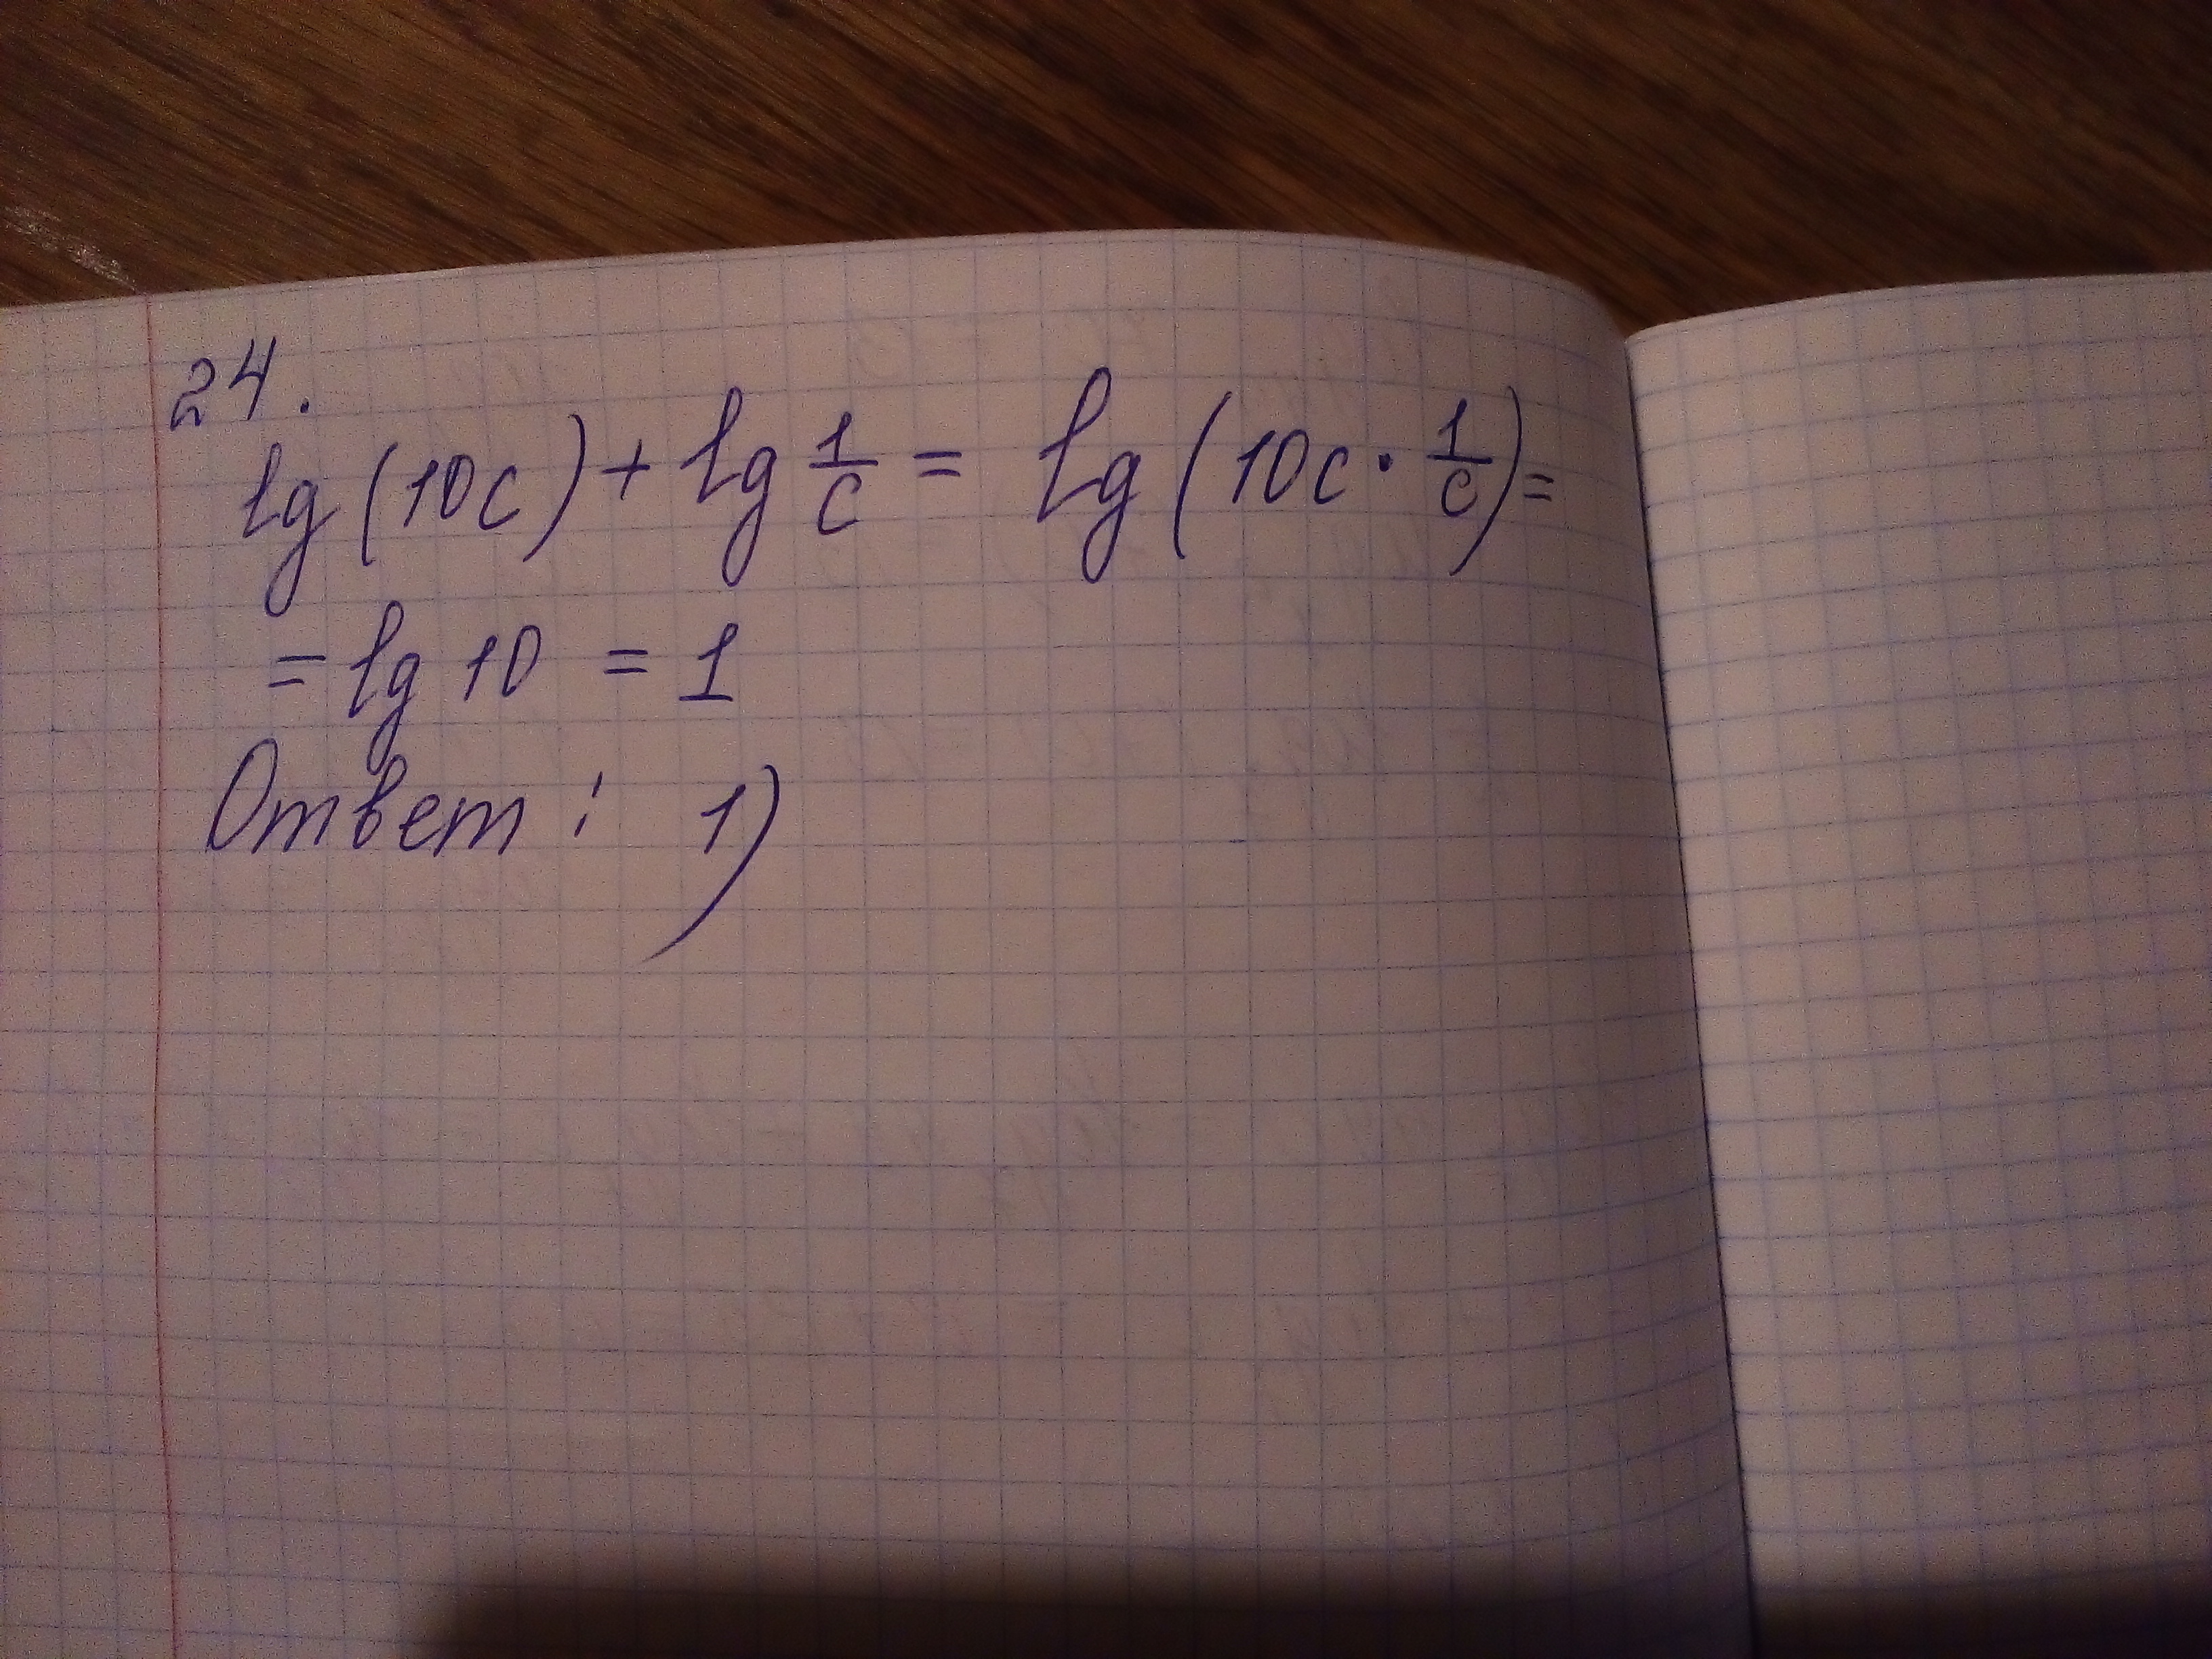 24.
lg (10c) + lg 1/c = lg (10c · 1/c) =
= lg 10 = 1
Ответ: 1)